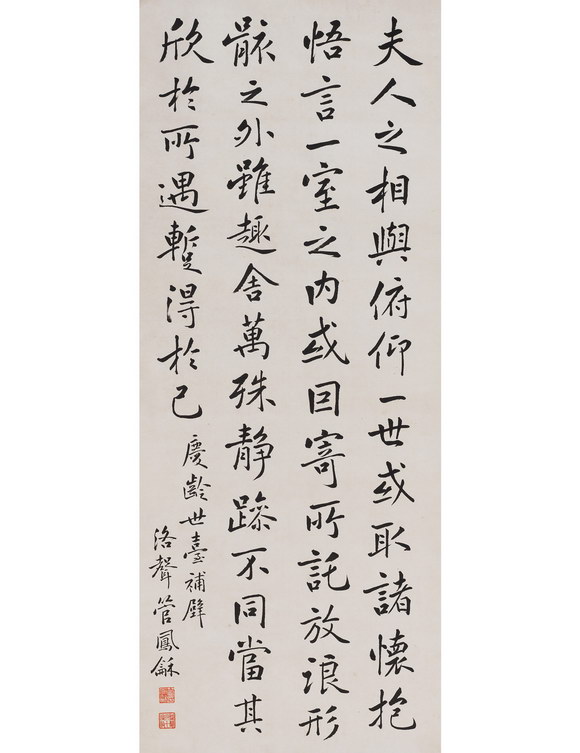 夫人之相與俯仰一世或取諸懷抱
悟言一室之内或因寄所託放浪形
骸之外雖趣舍萬殊静躁不同當其
欣於所遇蹔得於己
慶齡世臺補壁
洛聲管鳳龢